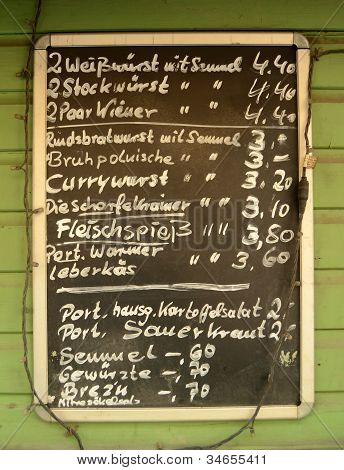 2 Weißwürst mit Semmel 4.40
2 Stockwürst " " 4,40
2 Paar Wiener " " 4.40
Rindsbratwurst mit Semmel 3.-
Brühpolnische " " 3.-
Currywurst " " 3.20
Die Scharfe Krainer " " 3,10
Fleischspieß " " 3,80
Port. Warmer
Leberkäs " " 3,60
Port. hausg. Kartoffelsalat 2
Port. Sauerkraut 2
Semmel -,60
Gewürzte -,70
Brezn -,70
bigstock
www.bigstock.com · 54655411